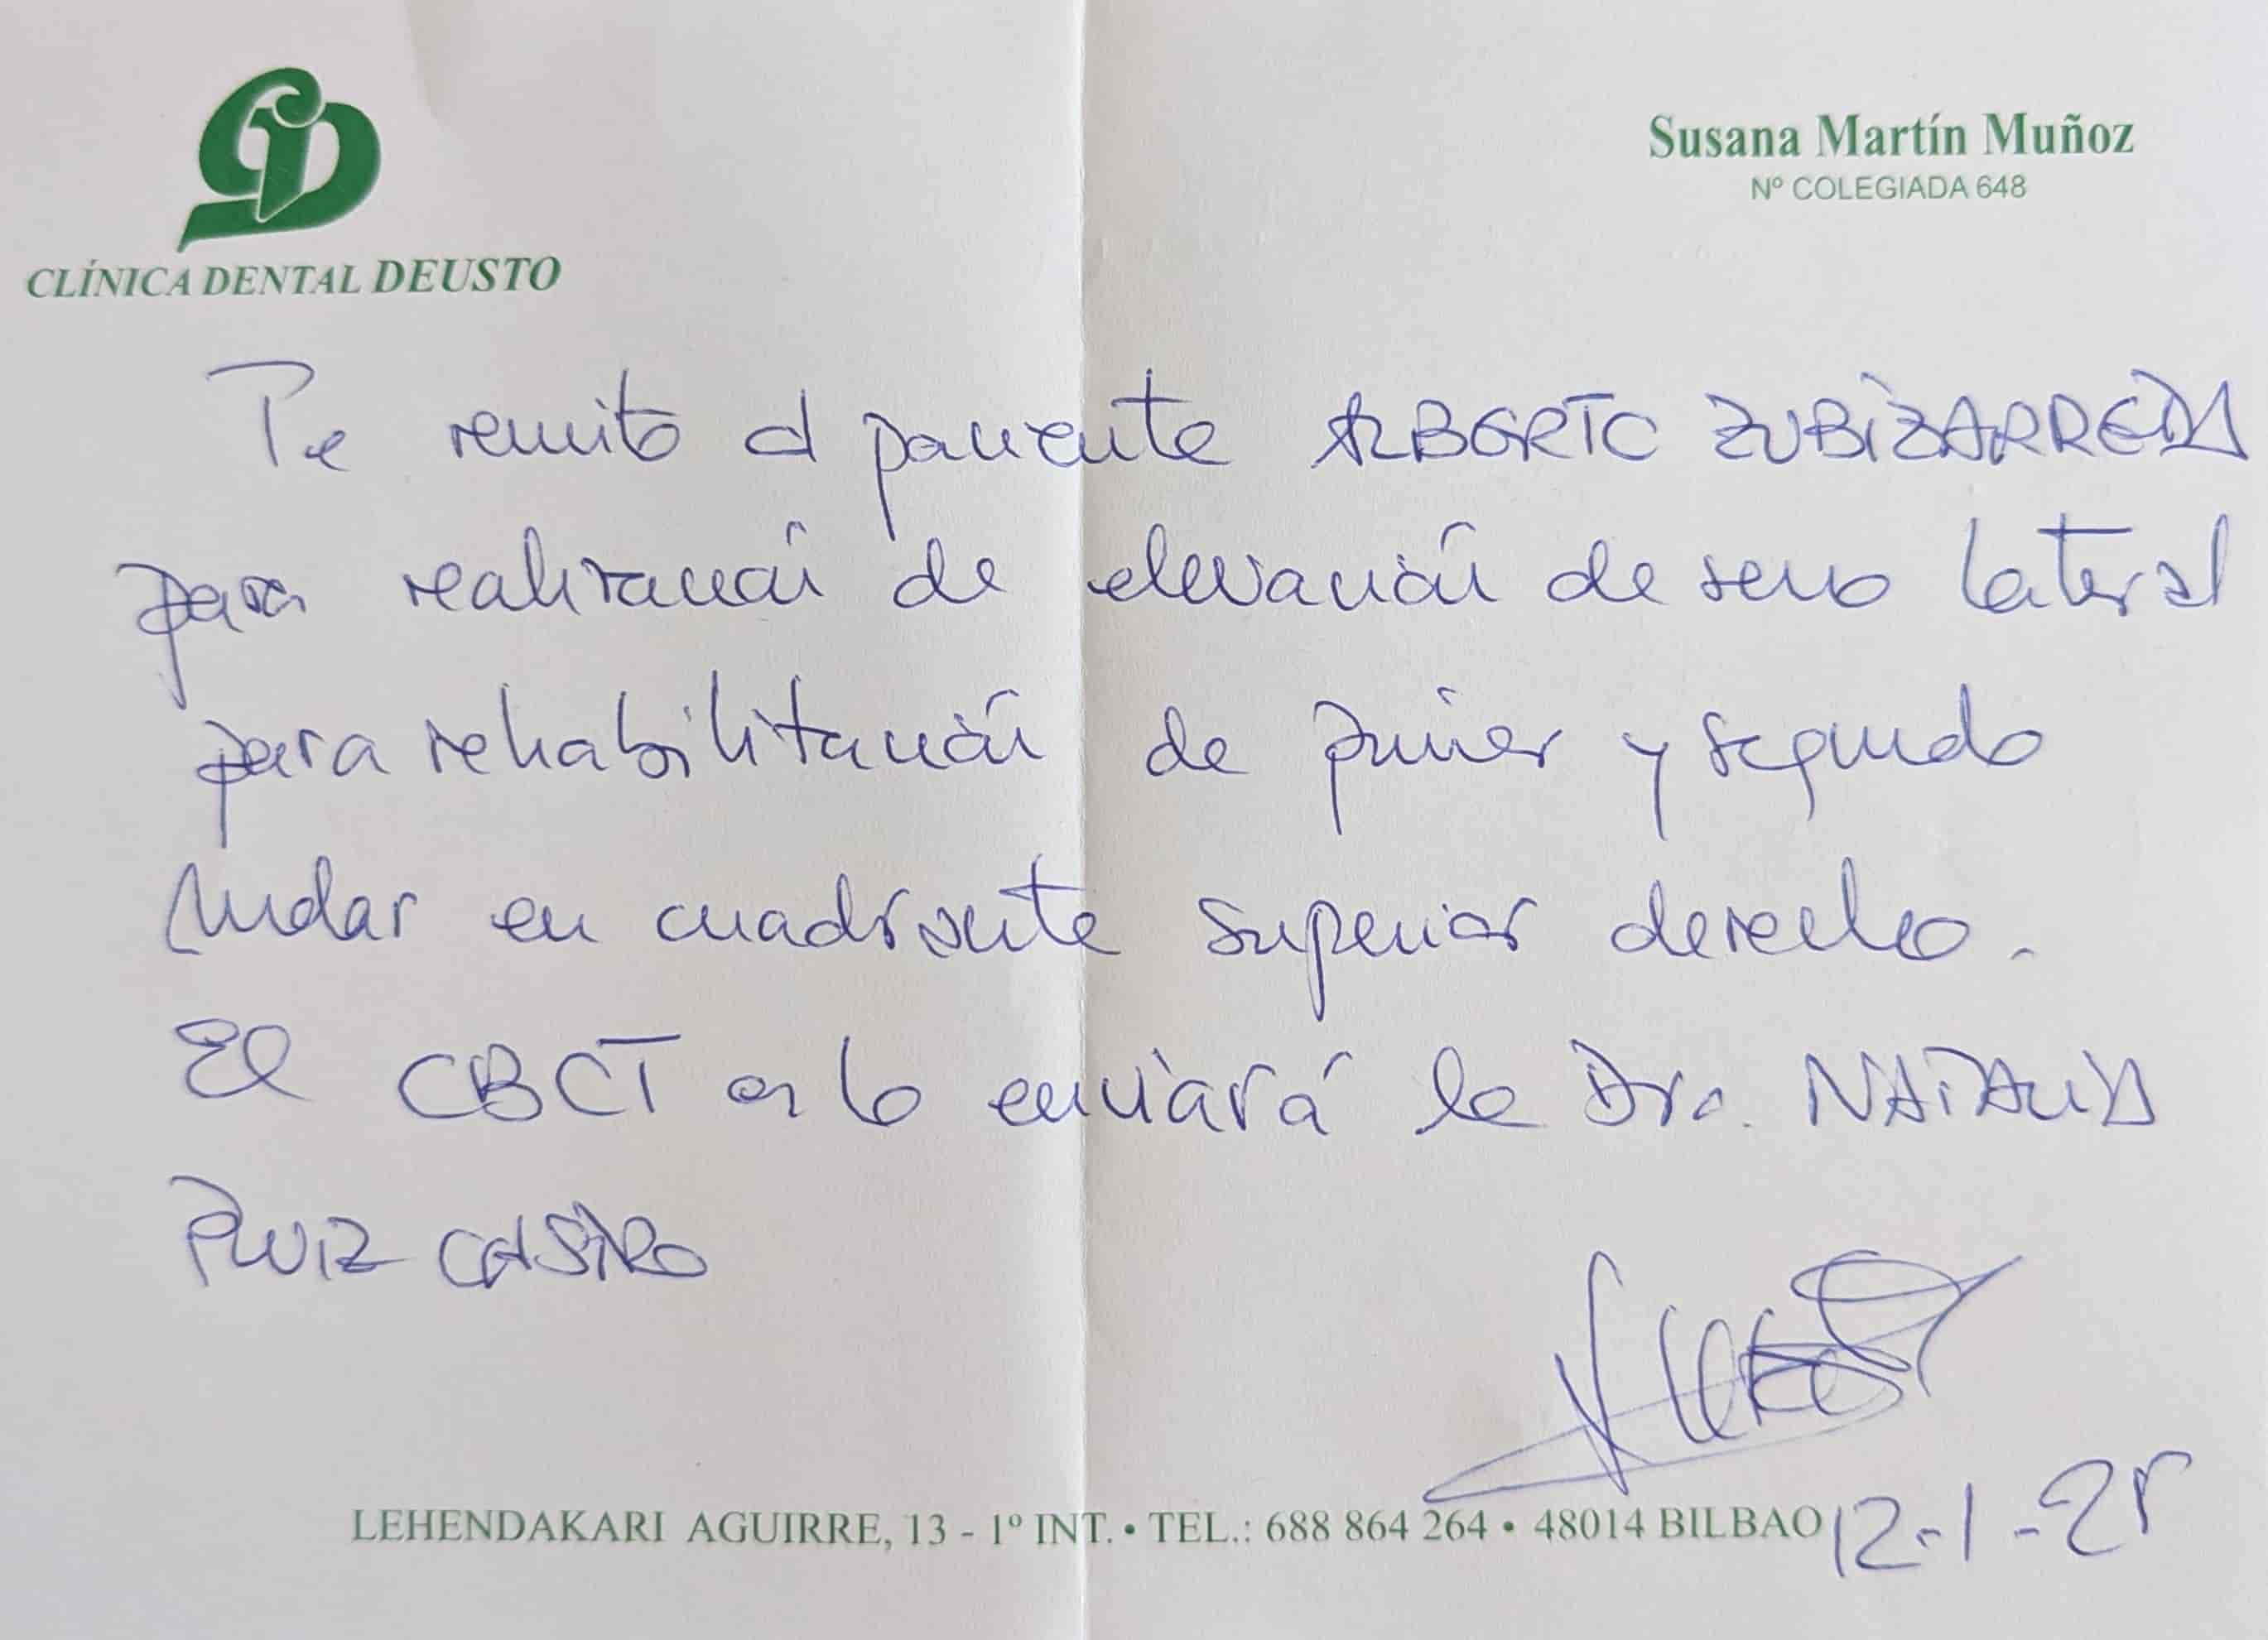 CLÍNICA DENTAL DEUSTO
Susana Martín Muñoz
Nº COLEGIADA 648
Te remito al paciente ALBERTO ZUBIZARRETA
para realización de elevación de seno lateral
para rehabilitación de primer y segundo
molar en cuadrante superior derecho.
El CBCT os lo enviará la Dra. NATALIA
RUIZ CASTRO
LEHENDAKARI AGUIRRE, 13 - 1º INT. • TEL.: 688 864 264 • 48014 BILBAO
12-1-25